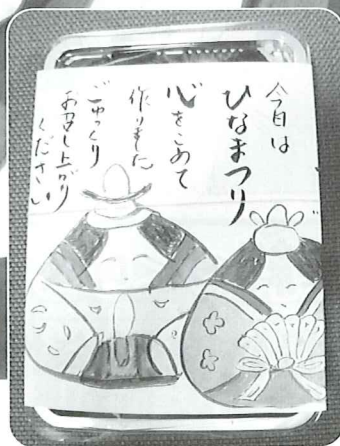 今日は
ひなまつり
心をこめて
作りました
ごゆっくり
お召し上がり
ください